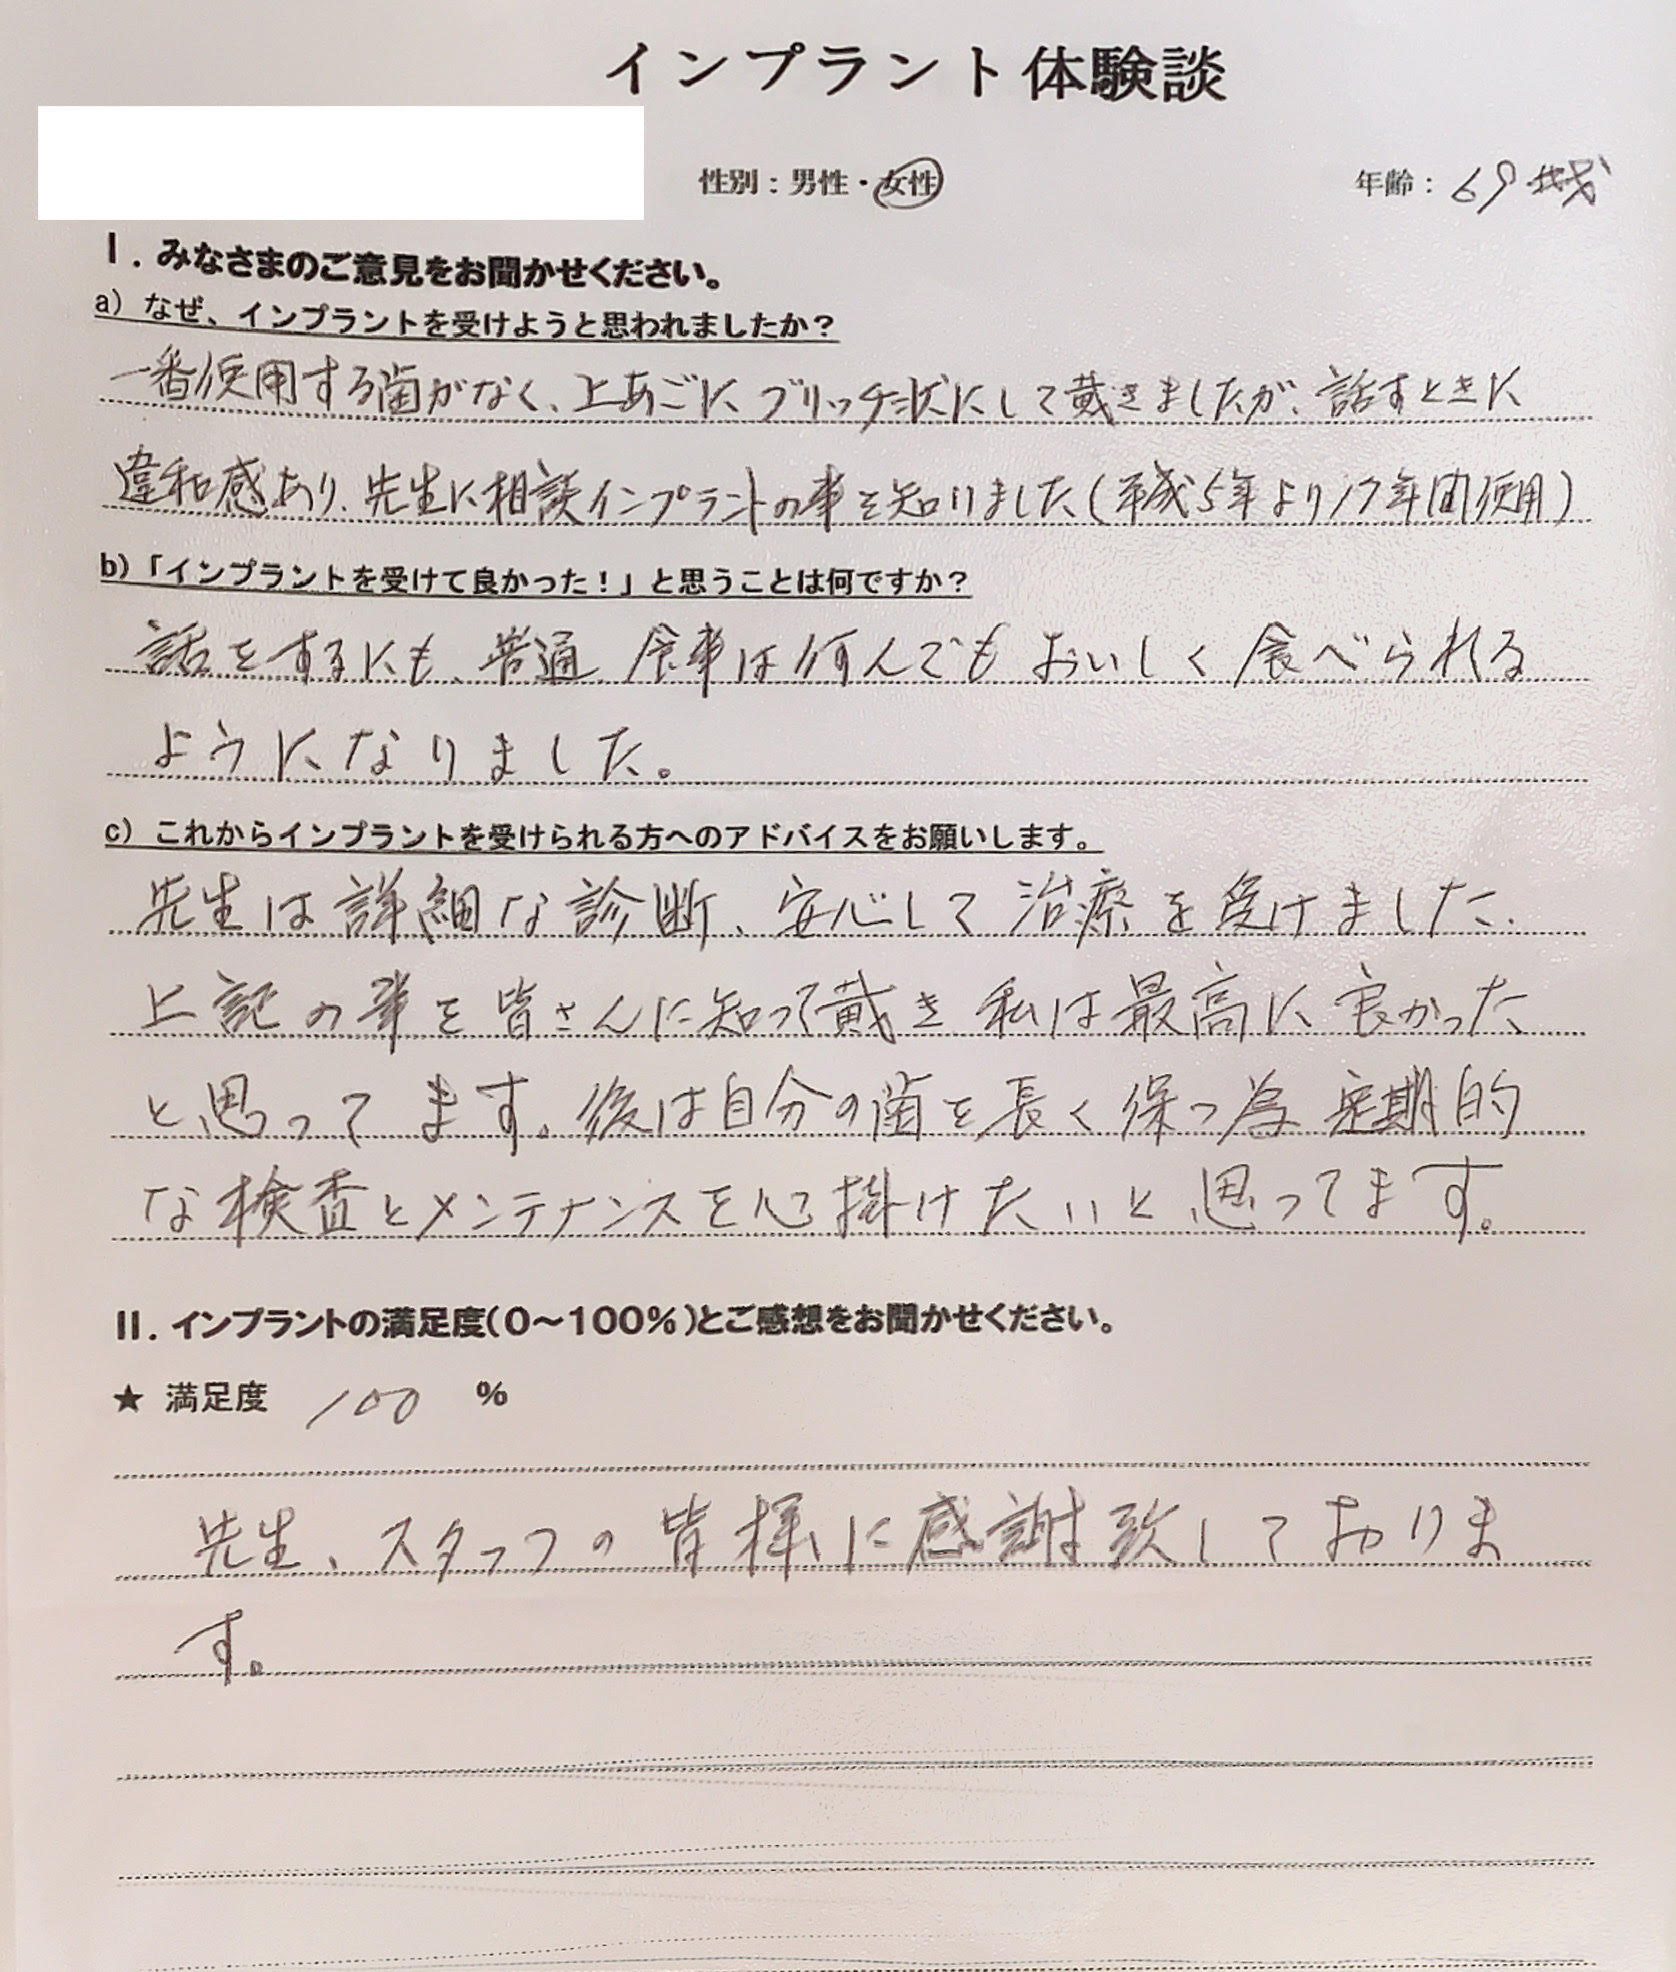 インプラント体験談
性別：男性・女性
年齢：69才
I. みなさまのご意見をお聞かせください。
a) なぜ、インプラントを受けようと思われましたか？
一番使用する歯がなく、上あごに ブリッチ状にして戴きましたが、話すときに
違和感あり、先生に相談インプラントの事を知りました(平成5年より17年間使用)
b)「インプラントを受けて良かった！」と思うことは何ですか？
話をするにも、普通 食事は何んでも おいしく 食べられる
ようになりました。
c) これからインプラントを受けられる方へのアドバイスをお願いします。
先生は詳細な診断、安心して治療を受けました.
上記の事を皆さんに知って戴き 私は最高に良かった
と思ってます。後は自分の歯を長く保つ為 定期的
な検査とメンテナンスを心掛けたいと思ってます。
II. インプラントの満足度(0～100%)とご感想をお聞かせください。
★ 満足度 100 %
先生、スタッフの皆様に感謝致しておりま
す。